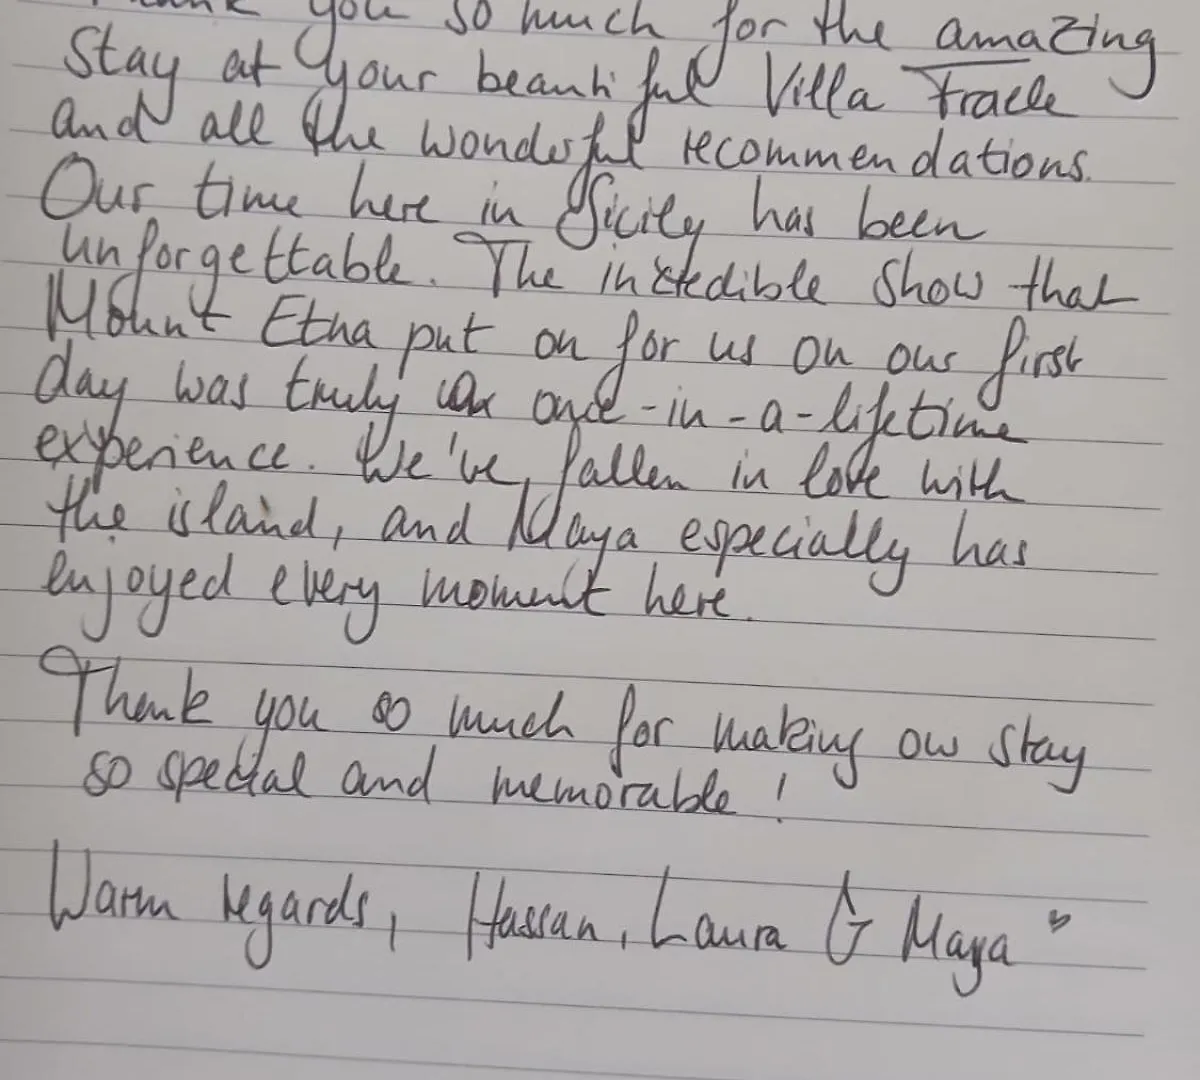 you so much for the amazing
Stay at your beautiful Villa
and all the wonderful recommendations.
Our time here in Sicily has been
unforgettable. The incredible show that
Mount Etna put on for us on our first
day was truly a once-in-a-lifetime
experience. We've fallen in love with
the island, and Maya especially has
enjoyed every moment here.
Thank you so much for making our stay
so special and memorable!
Warm regards, Hassan, Laura & Maya